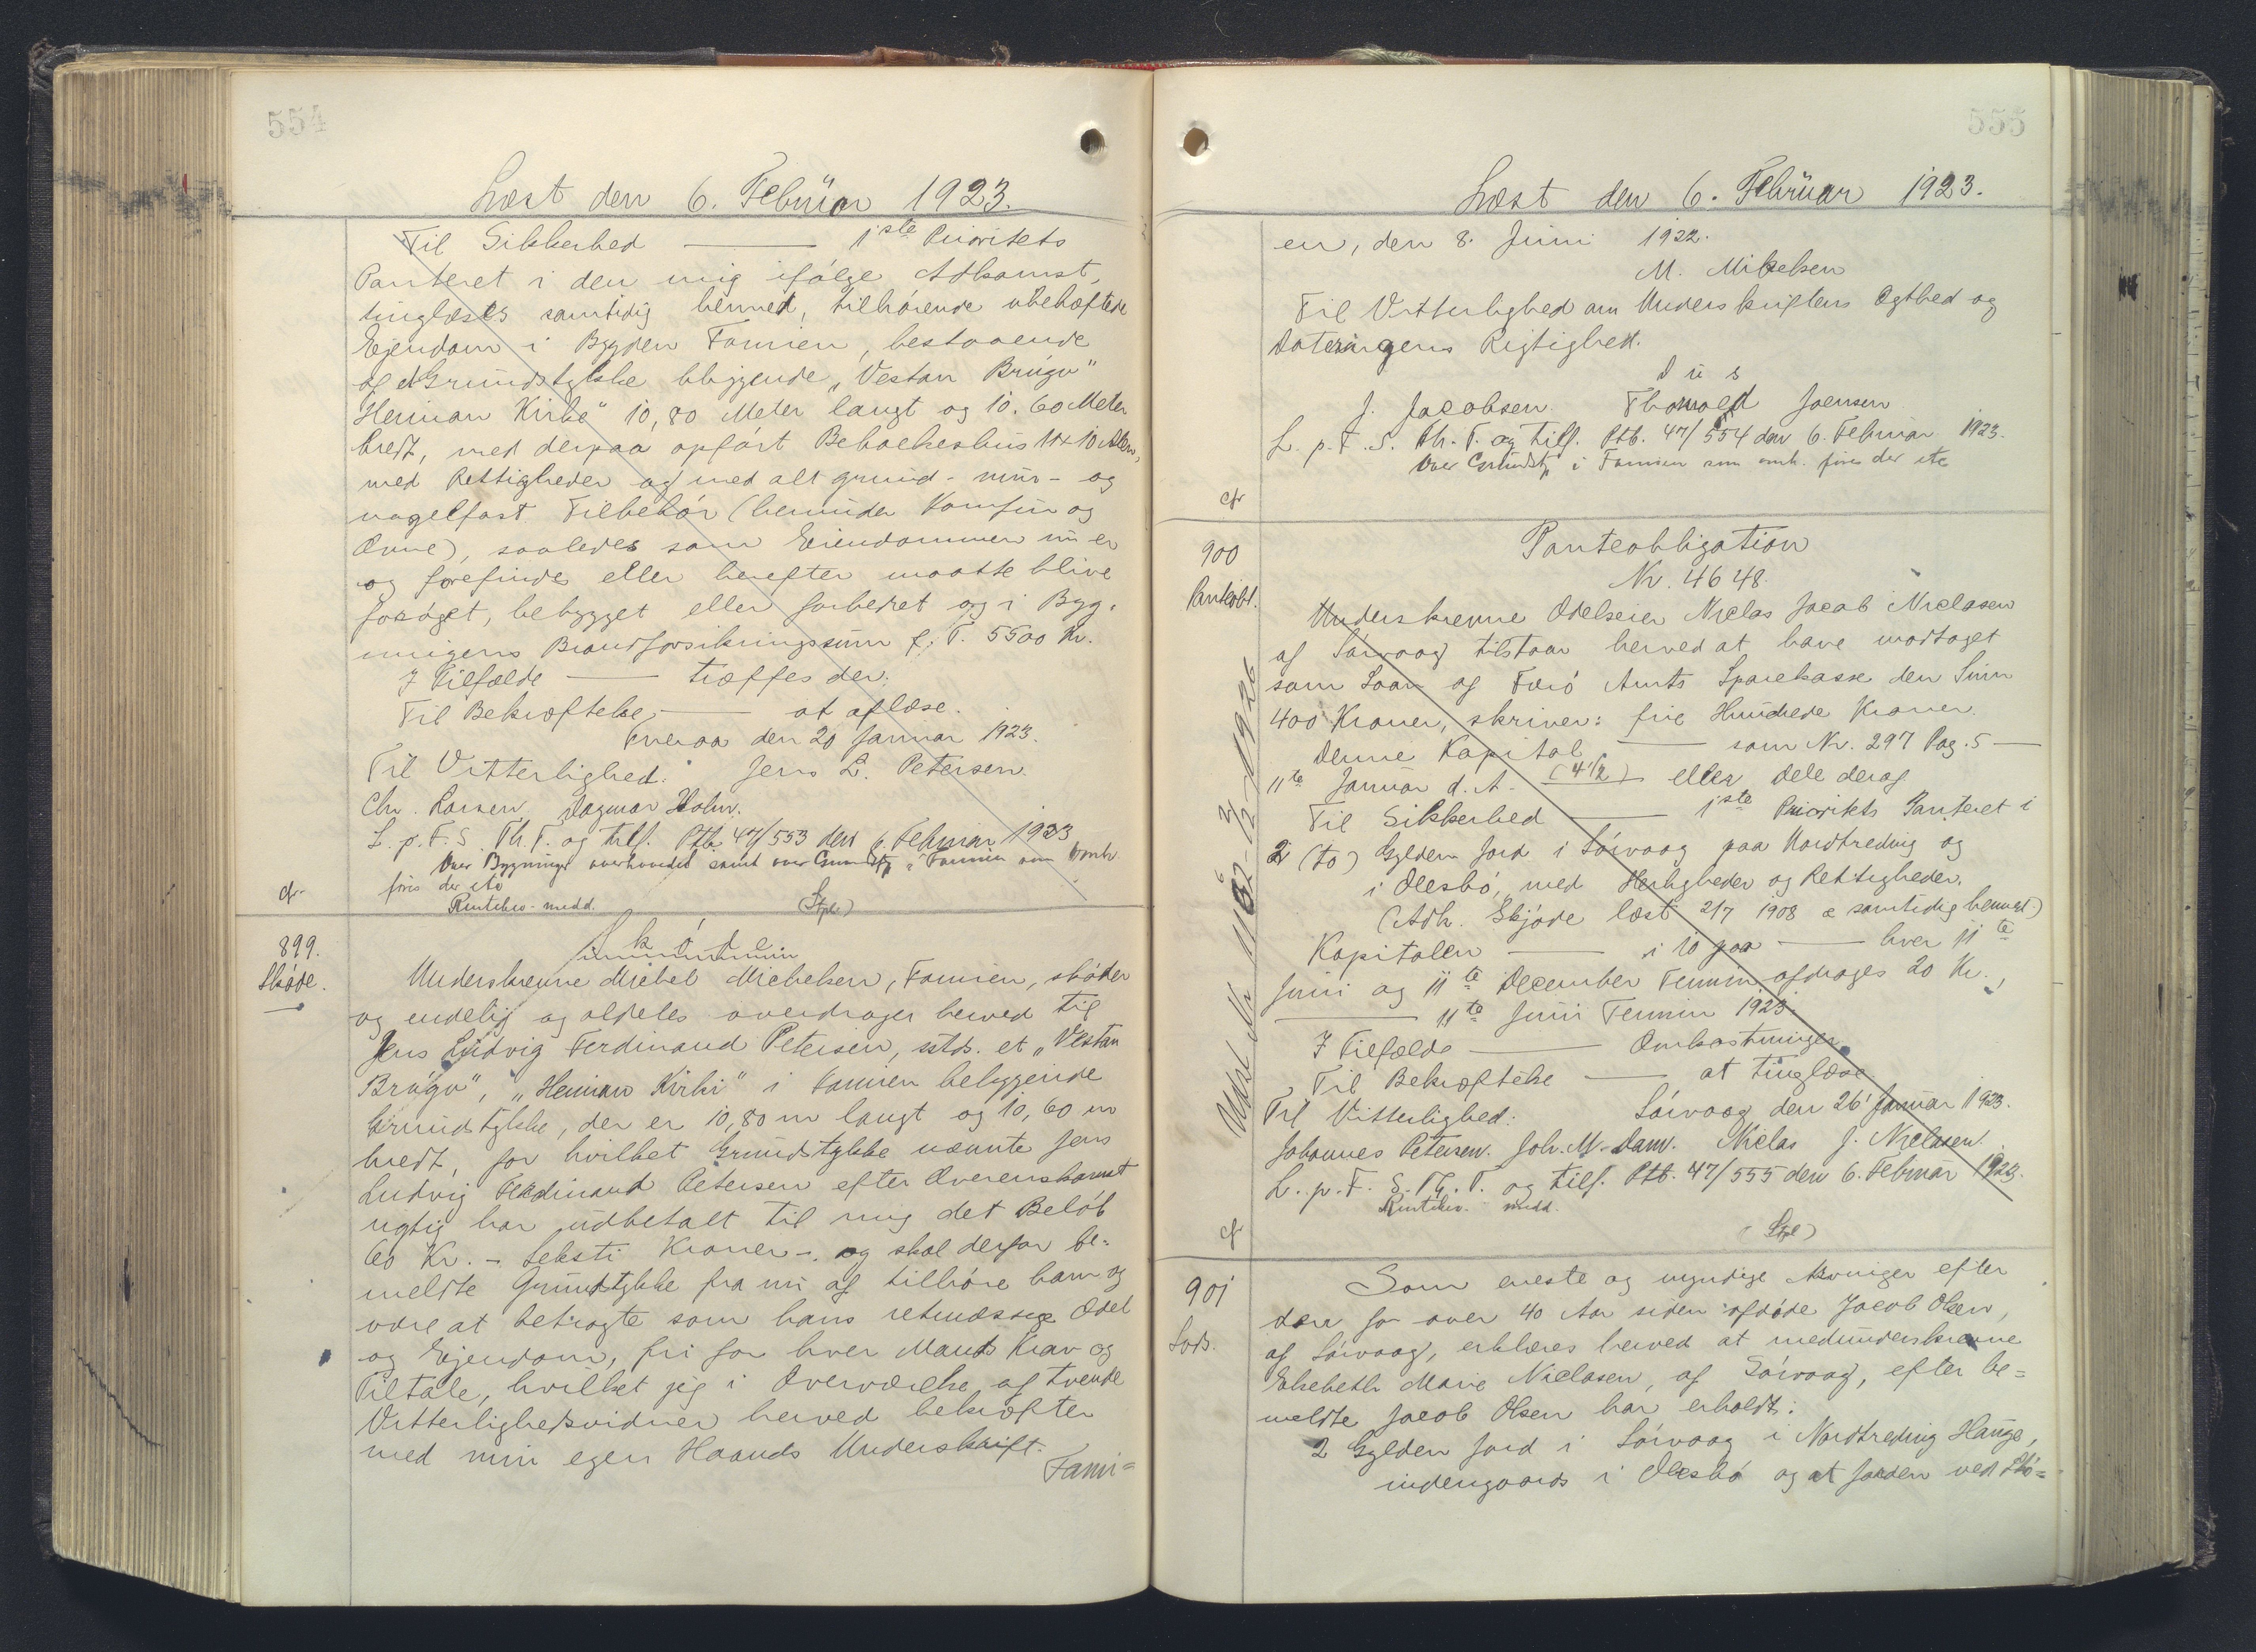 554
Læst den 6. Februar 1923.
Til Sikkerhed — 1ste Prioritets
Panteret i den mig ifølge Adkomst,
tinglæses samtidig hermed, tilhørende ubehæftede
Ejendom i Bygden Famien, bestaaende
af et Grundstykke beliggende "Vestan Brúgv"
"Heiman Kirke" 10,80 Meter langt og 10.60 Meter
bredt, med derpaa opført Beboelseshus 11x10 Alen,
med Rettigheder og med alt grund- mur- og
nagelfast Tilbehør (herunder Komfur og
Ovne), saaledes som Eiendommen nu er
og forefindes eller herefter maatte blive
forøget, bebygget eller forbedret og i Byg-
ningens Brandforsikringssum f. T. 5500 Kr.
I Tilfælde — træffes der.
Til Bekræftelse — at aflæse.
Tveraa den 20 Januar 1923.
Til Vitterlighed: Jens L. Petersen.
Chr. Larsen Dagmar Holm.
L. p. F. S. Th. P. og tilf. Ptb. 47/553 den 6. Februar 1923
Over Bygninger overhovedet samt over Grundst. i Famien som omh.
cfr.
føres der etc
Rentebev. medd. (Stpl.)
899.
Skøde.
Skøde
Underskrevne Michel Michelsen, Famien, skøder
og endelig og aldeles overdrager herved til
Jens Ludvig Ferdinand Petersen, sstds. et "Vestan
Brúgv", "Heiman Kirki" i Famien beliggende
Grundstykke, der er 10,80 m langt og 10,60 m
bredt, for hvilket Grundstykke nævnte Jens
Ludvig Ferdinand Petersen efter Overenskomst
rigtig har udbetalt til mig det Beløb
60 Kr. - Seksti Kroner -. og skal derfor be-
meldte Grundstykke fra nu af tilhøre ham og
være at betragte som hans retmæssige Odel
og Ejendom, fri for hver Mands Krav og
Tiltale, hvilket jeg i Overværelse af tvende
Vitterlighedsvidner herved bekræfter
med min egen Haands Underskrift.
Fami=
555
Læst den 6. Februar 1923.
en, den 8. Juni 1922.
M. Mikkelsen
Til Vitterlighed om Underskriftens Ægthed og
Dateringens Rigtighed.
D u s
J. Jacobsen. Thorvald Joensen
L. p. F. S. Th. P. og tilf. Ptb. 47/554 den 6. Februar 1923.
Over Grundst. i Famien som omh. føres der etc
cfr
900
Panteobl.
Panteobligation
Nr. 4648.
Underskrevne Odelseier Niclas Jacob Niclasen
af Sørvaag tilstaar herved at have modtaget
som Laan af Færø Amts Sparekasse den Sum
400 Kroner, skriver: fire Hundrede Kroner.
Denne Kapital — som Nr. 297 Pag. 5 —
11te Januar d. A. - (4 1/2) - eller dele deraf
Til Sikkerhed — 1ste Prioritets Panteret i
2 (to) Gylden Jord i Sørvaag paa Nordtreding og
i Olesbø, med Herligheder og Rettigheder.
(Adk. Skjøde læst 2/7 1908 & samtidig hermed.)
Kapitalen — i 10 paa — hver 11te
Juni og 11te December Termin afdrages 20 Kr.,
— 11te Juni Termin 1923.
I Tilfælde — Omkostninger.
Til Bekræftelse — at tinglæse
Til Vitterlighed: Sørvaag, den 26' Januar 1923.
Johannes Petersen. Joh. M. Dam. Niclas J. Niclasen.
L. p. F. S. Th. P. og tilf. Ptb. 47/555 den 6. Februar 1923.
Rentebev. medd.
cfr
(Stpl)
901
Lods.
Som eneste og myndige Arvinger efter
den for over 40 Aar siden afdøde Jacob Olsen,
af Sørvaag, erklæres herved at medunderskrevne
Elsebeth Marie Niclasen, af Sørvaag, efter be=
meldte Jacob Olsen har erholdt:
2 Gylden Jord i Sørvaag i Nordtreding Hauge,
indengaards i Olesbø og at Jorden ved Skø=